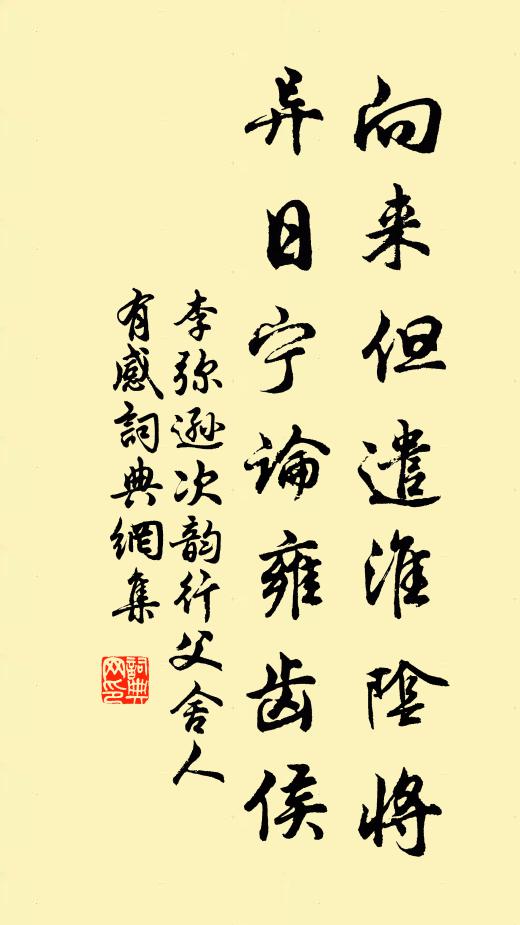 向来但遣淮陰将
异日宁論雍齿侯
李弥逊次韵行父舍人
有感詞典網集
詞典網印